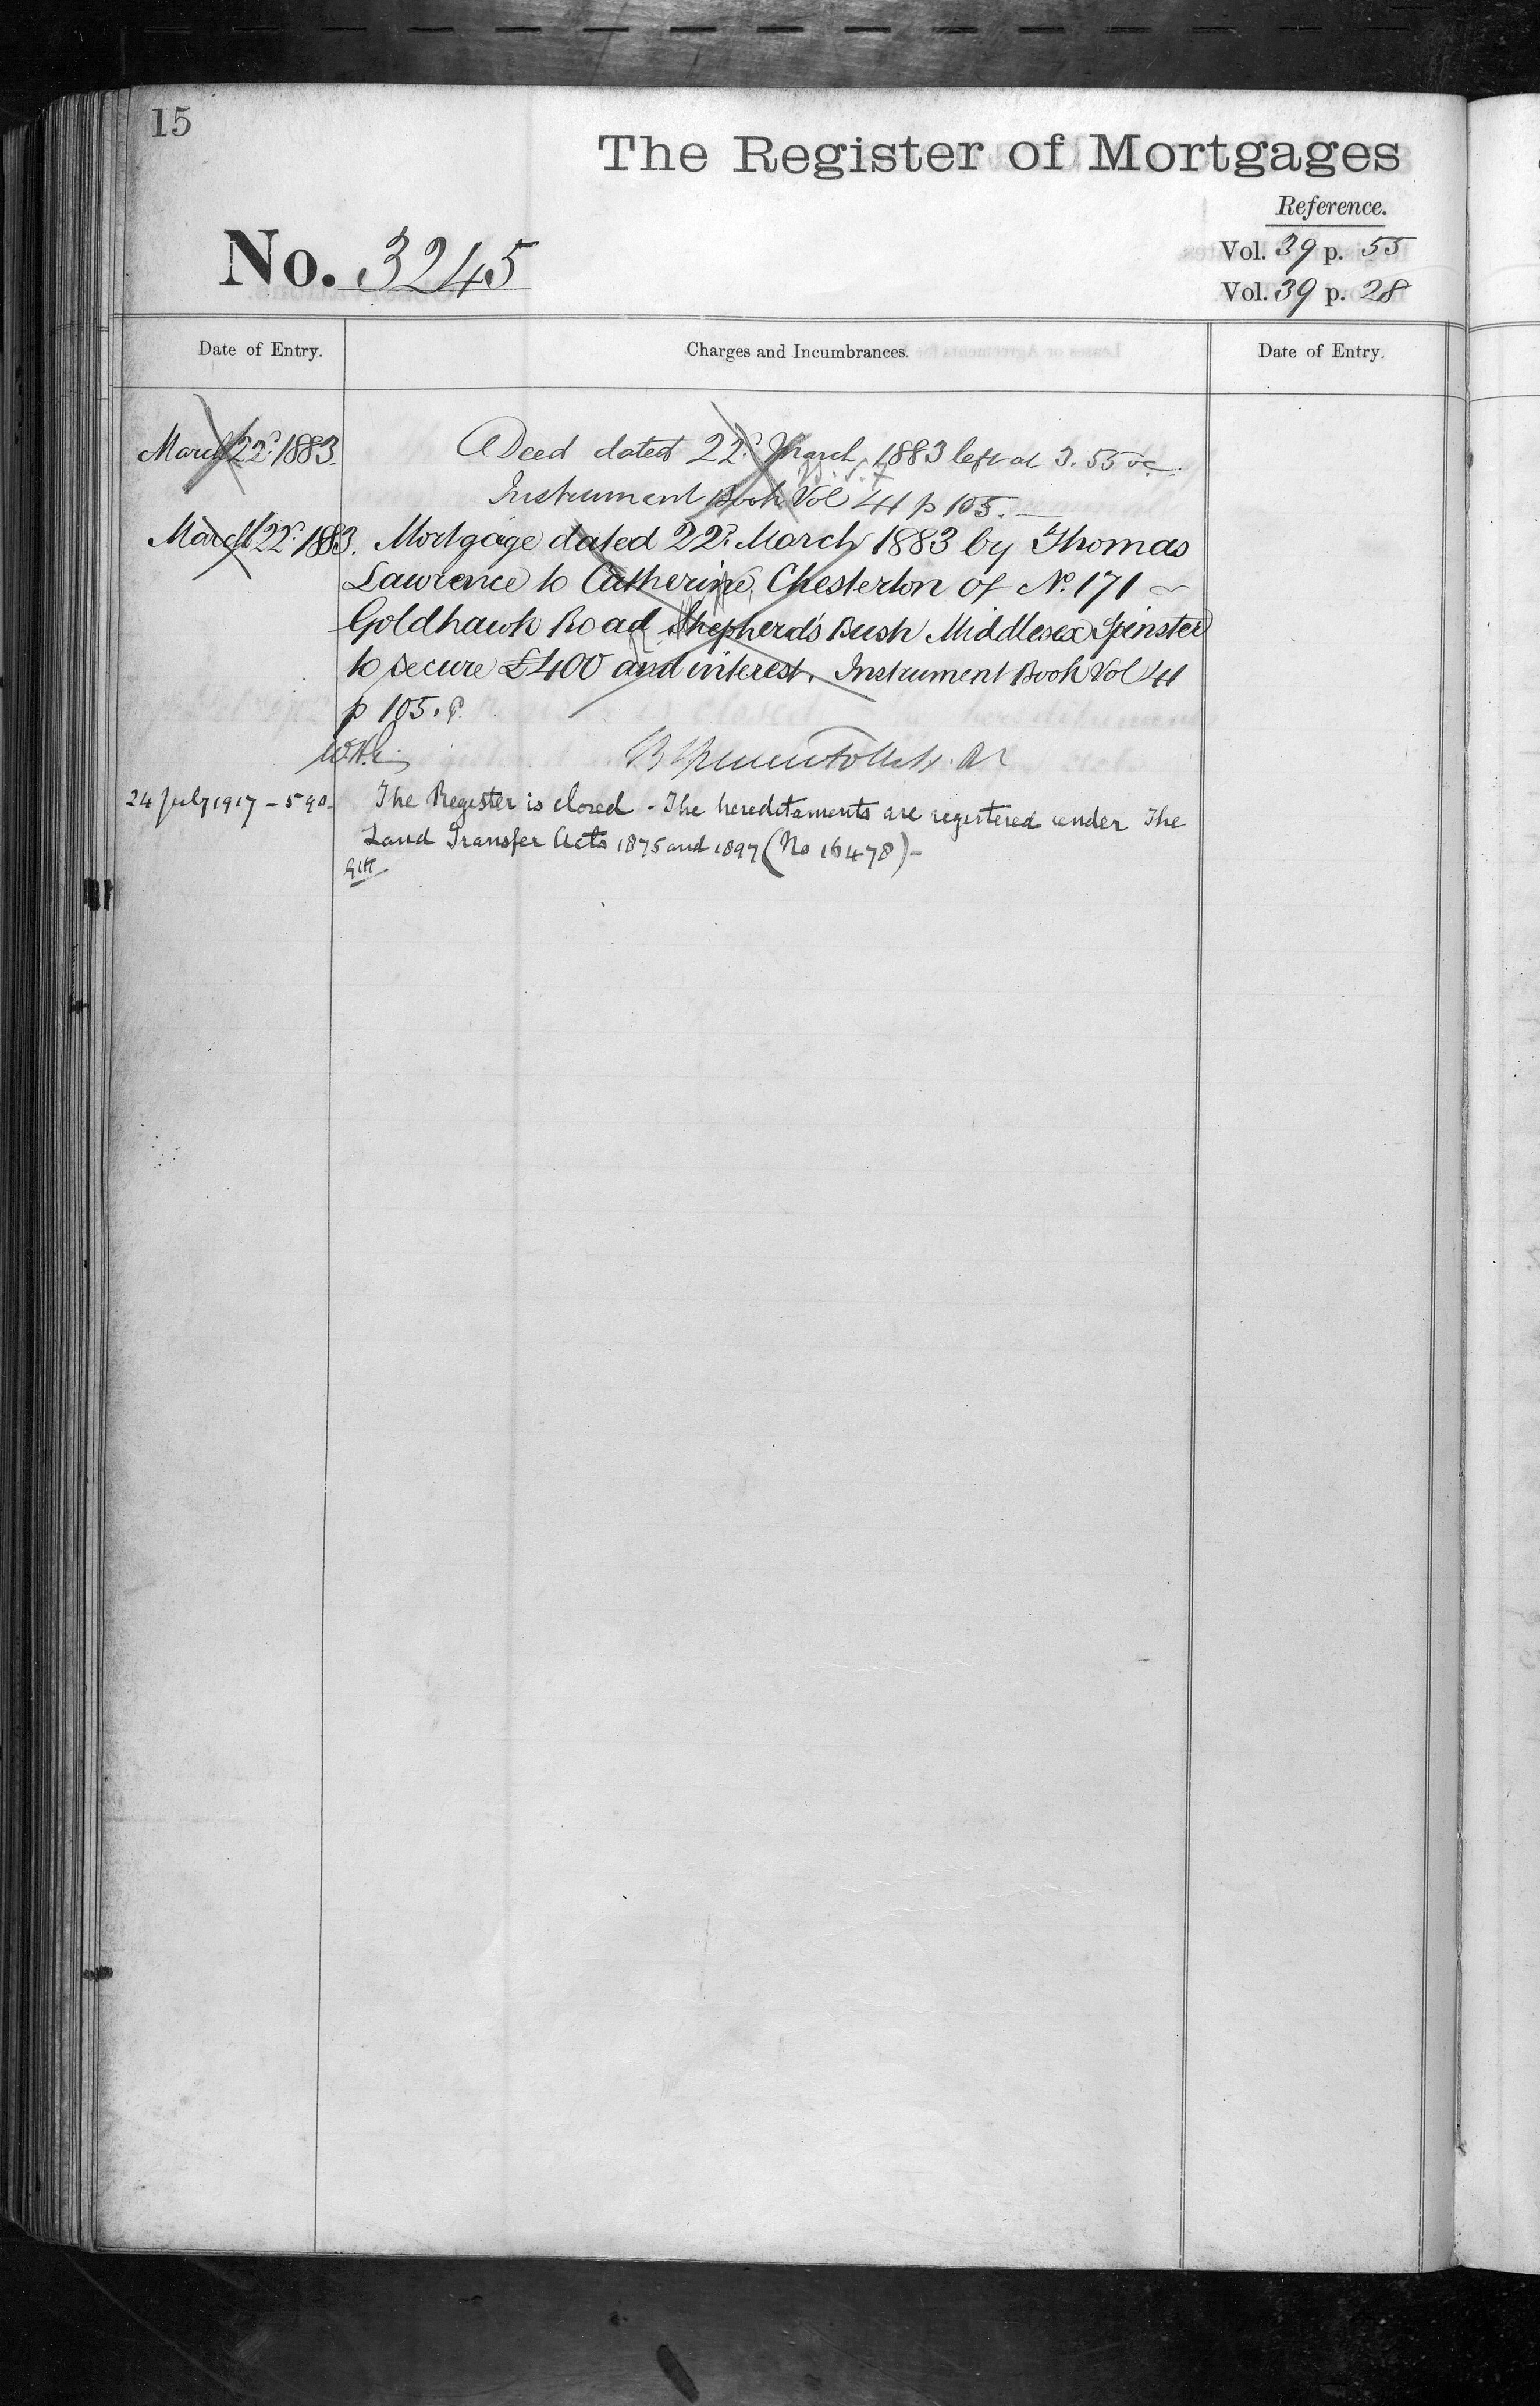 15
The Register of Mortgages
Reference.
No. 3245
Vol. 39 p. 55
Vol. 39 p. 28
Date of Entry.
Charges and Incumbrances.
Date of Entry.
March 22d 1883.
A Deed dated 22d March 1883 left at 3.55 oc
Instrument Book Vol 41 p 105.
March 22d 1883.
Mortgage dated 22d March 1883 by Thomas
Lawrence to Catherine Chesterton of No. 171
Goldhawk Road Shepherd's Bush Middlesex Spinster
to secure £400 and interest. Instrument Book Vol 41
p 105.
24 July 1917 - 590.
The Register is closed - The hereditaments are registered under The
Land Transfer Acts 1875 and 1897 (No 16478) -